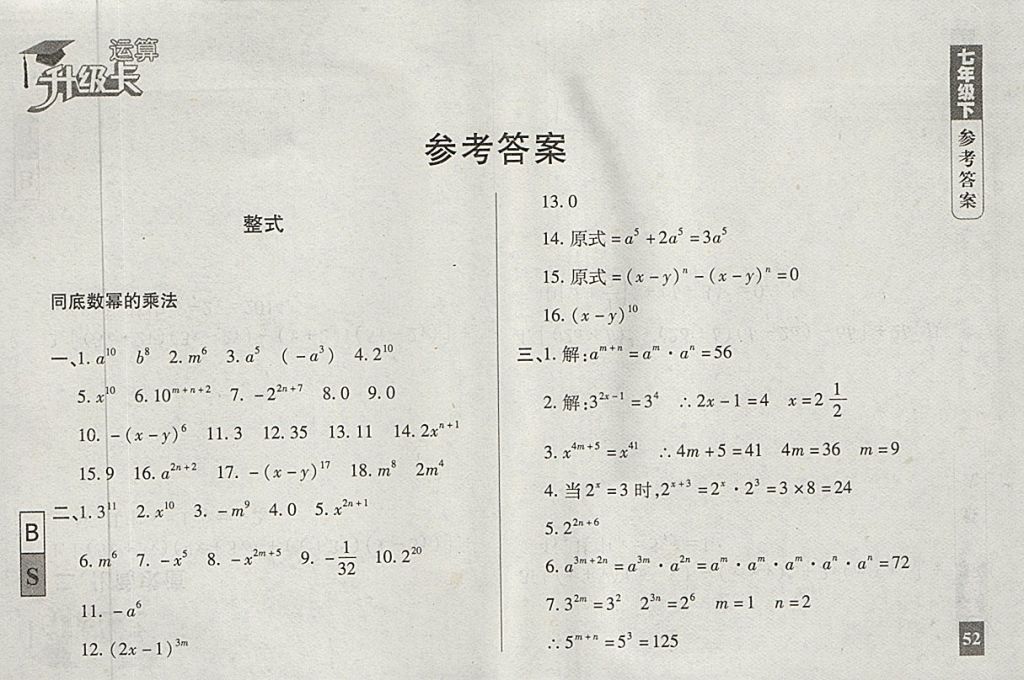 运算
升级卡
七年级下
参考答案
参考答案
整式
同底数幂的乘法
一、1. a¹⁰  b⁸  2. m⁶  3. a⁵  (－a³)  4. 2¹⁰
5. x¹⁰  6. 10ᵐ⁺ⁿ⁺²  7. －2²ⁿ⁺⁷  8. 0  9. 0
10. －(x－y)⁶  11. 3  12. 35  13. 11  14. 2xⁿ⁺¹
15. 9  16. a²ⁿ⁺²  17. －(x－y)¹⁷  18. m⁸  2m⁴
二、1. 3¹¹  2. x¹⁰  3. －m⁹  4. 0  5. x²ⁿ⁺¹
6. m⁶  7. －x⁵  8. －x²ᵐ⁺⁵  9. －1/32  10. 2²⁰
11. －a⁶
12. (2x－1)³ᵐ
13. 0
14. 原式=a⁵+2a⁵=3a⁵
15. 原式=(x－y)ⁿ－(x－y)ⁿ=0
16. (x－y)¹⁰
三、1. 解:aᵐ⁺ⁿ=aᵐ·aⁿ=56
2. 解:3²ˣ⁻¹=3⁴  ∴2x－1=4  x=2 1/2
3. x⁴ᵐ⁺⁵=x⁴¹  ∴4m+5=41  4m=36  m=9
4. 当2ˣ=3时,2ˣ⁺³=2ˣ·2³=3×8=24
5. 2²ⁿ⁺⁶
6. a³ᵐ⁺²ⁿ=a³ᵐ·a²ⁿ=aᵐ·aᵐ·aᵐ·aⁿ·aⁿ=72
7. 3²ᵐ=3²  2³ⁿ=2⁶  m=1  n=2
∴5ᵐ⁺ⁿ=5³=125
B
S
52